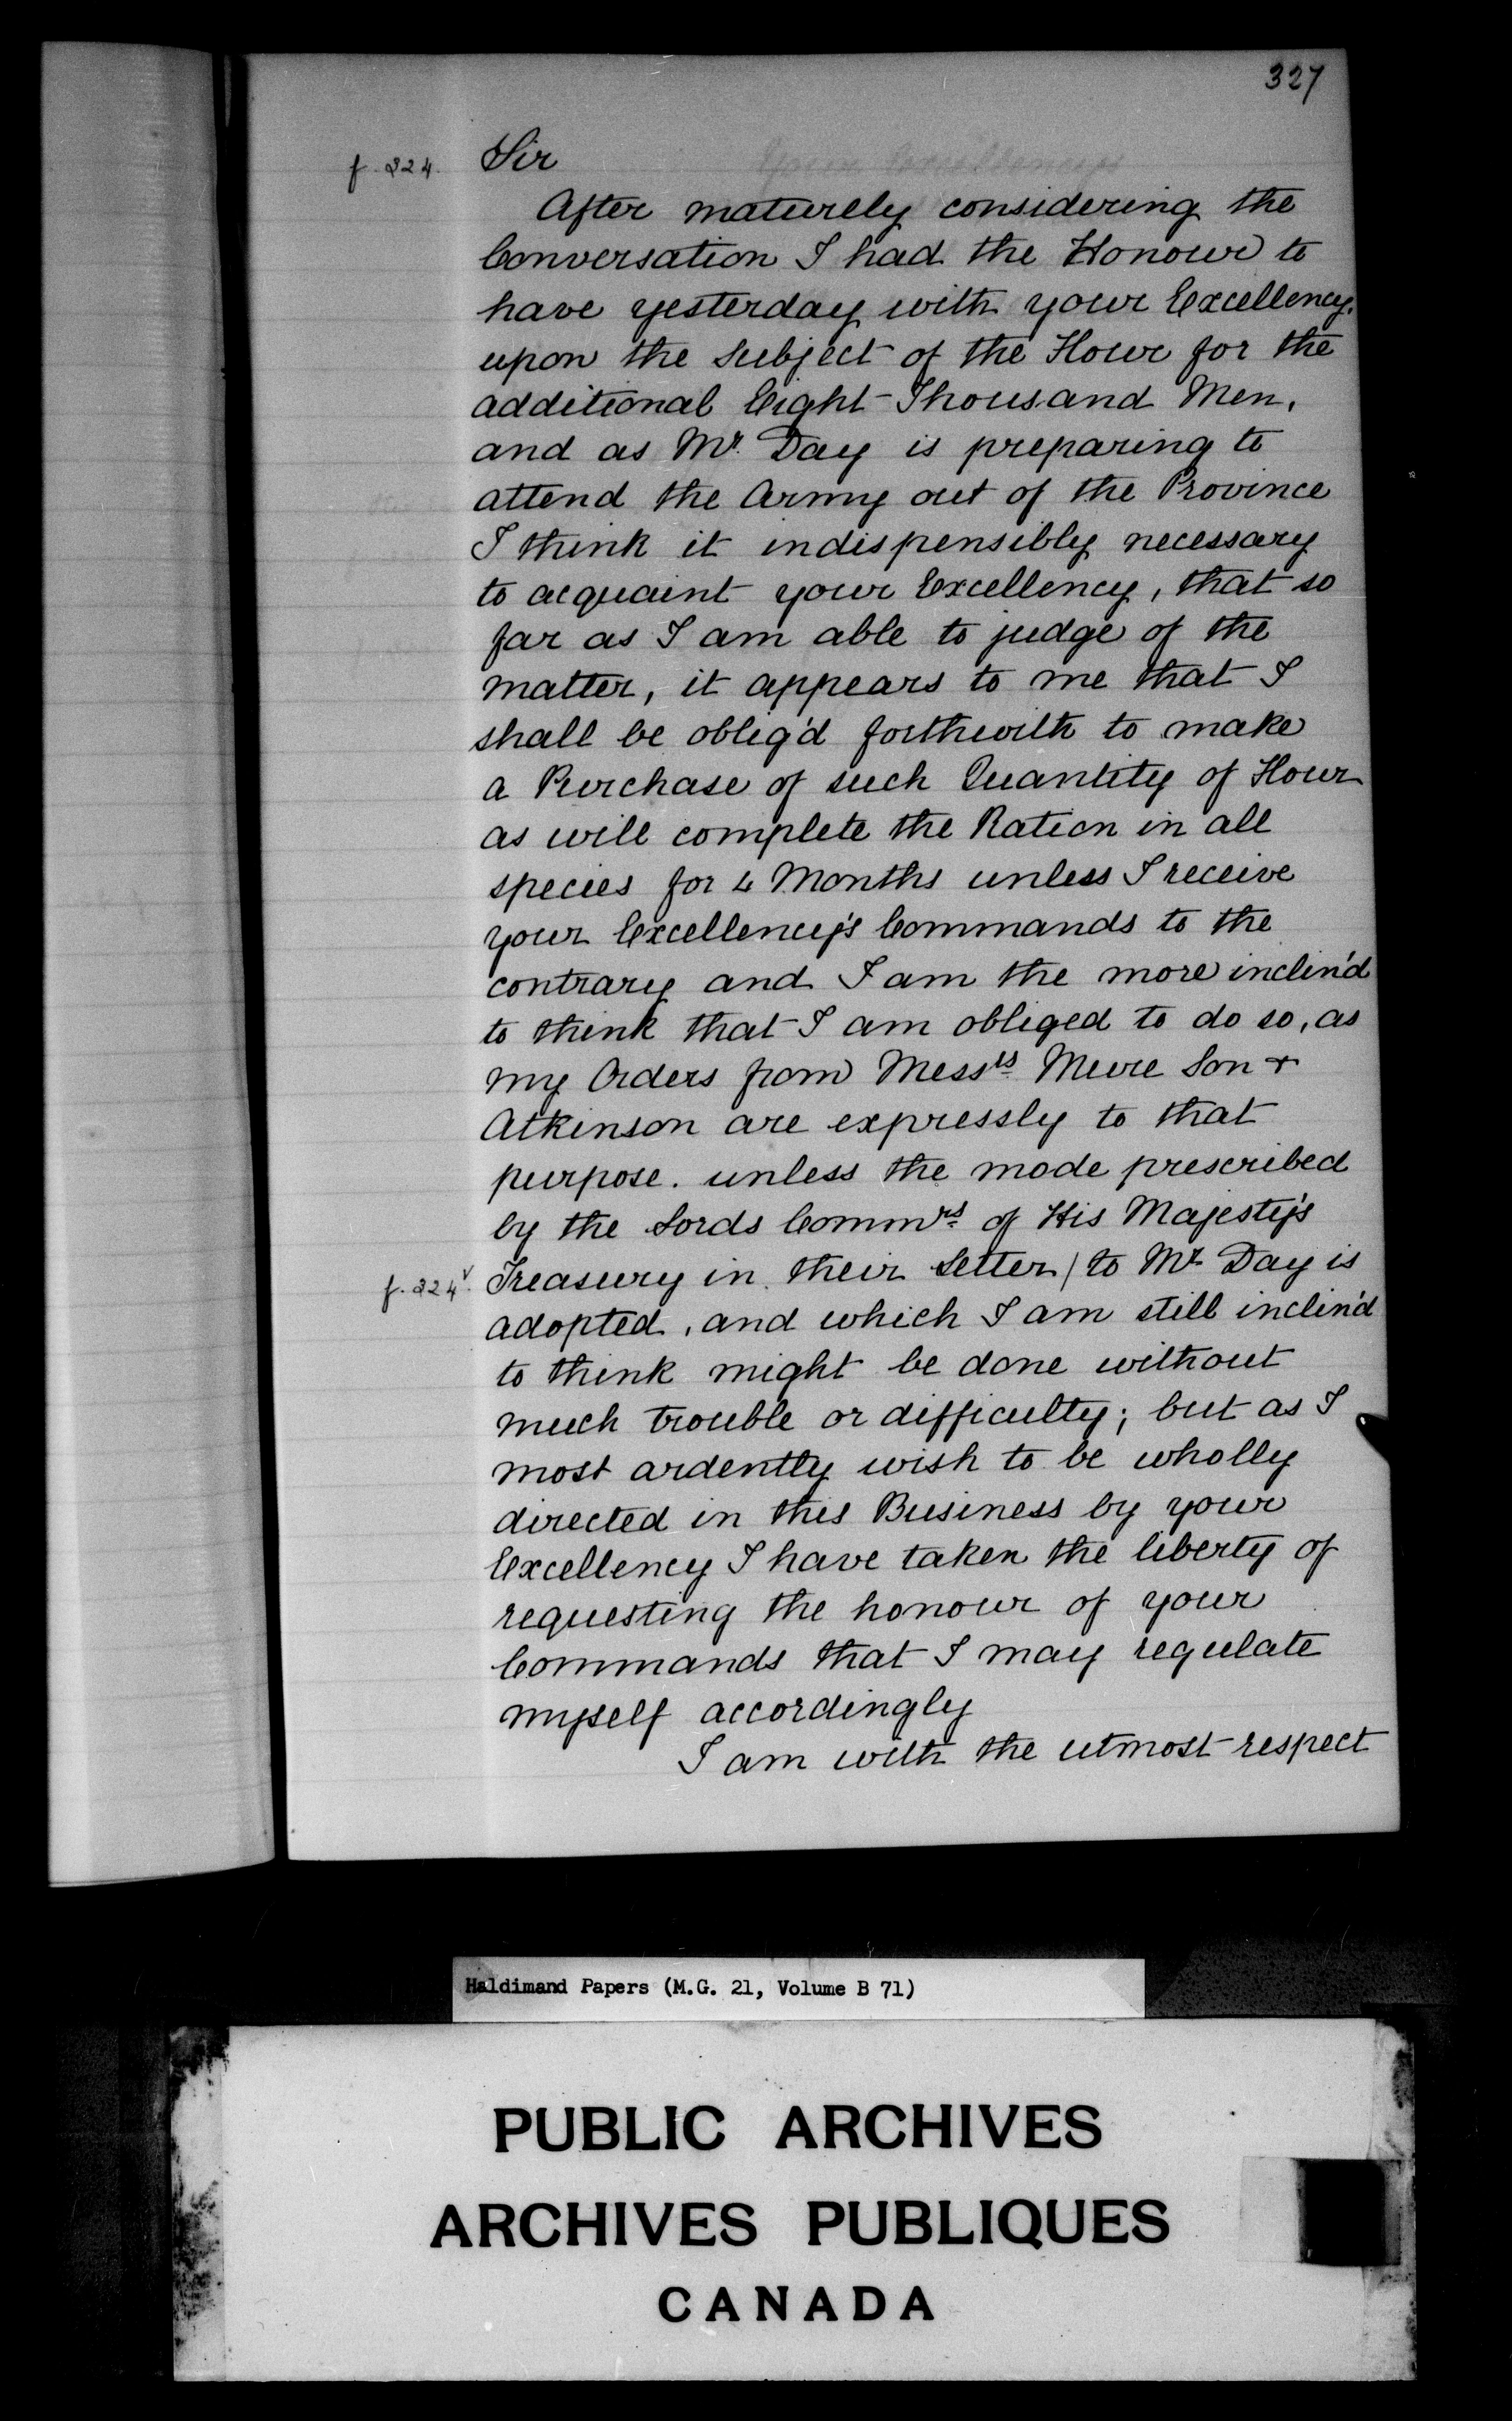 327
f. 224. Sir
After maturely considering the
Conversation I had the Honour to
have yesterday with your Excellency,
upon the Subject of the Flour for the
additional Eight Thousand Men,
and as Mr. Day is preparing to
attend the Army out of the Province
I think it indispensibly necessary
to acquaint your Excellency, that so
far as I am able to judge of the
matter, it appears to me that I
shall be oblig'd forthwith to make
a Purchase of such Quantity of Flour
as will complete the Ration in all
species for 4 Months unless I receive
your Excellency's Commands to the
contrary and I am the more inclin'd
to think that I am obliged to do so, as
my Orders from Messrs. Mure Son +
Atkinson are expressly to that
purpose. unless the mode prescribed
by the Lords Commrs. of His Majesty's
f. 224v. Treasury in their Letter / to Mr. Day is
adopted, and which I am still inclin'd
to think might be done without
much trouble or difficulty; but as I
most ardently wish to be wholly
directed in this Business by your
Excellency I have taken the liberty of
requesting the honour of your
Commands that I may regulate
myself accordingly
I am with the utmost respect
Haldimand Papers (M.G. 21, Volume B 71)
PUBLIC ARCHIVES
ARCHIVES PUBLIQUES
CANADA